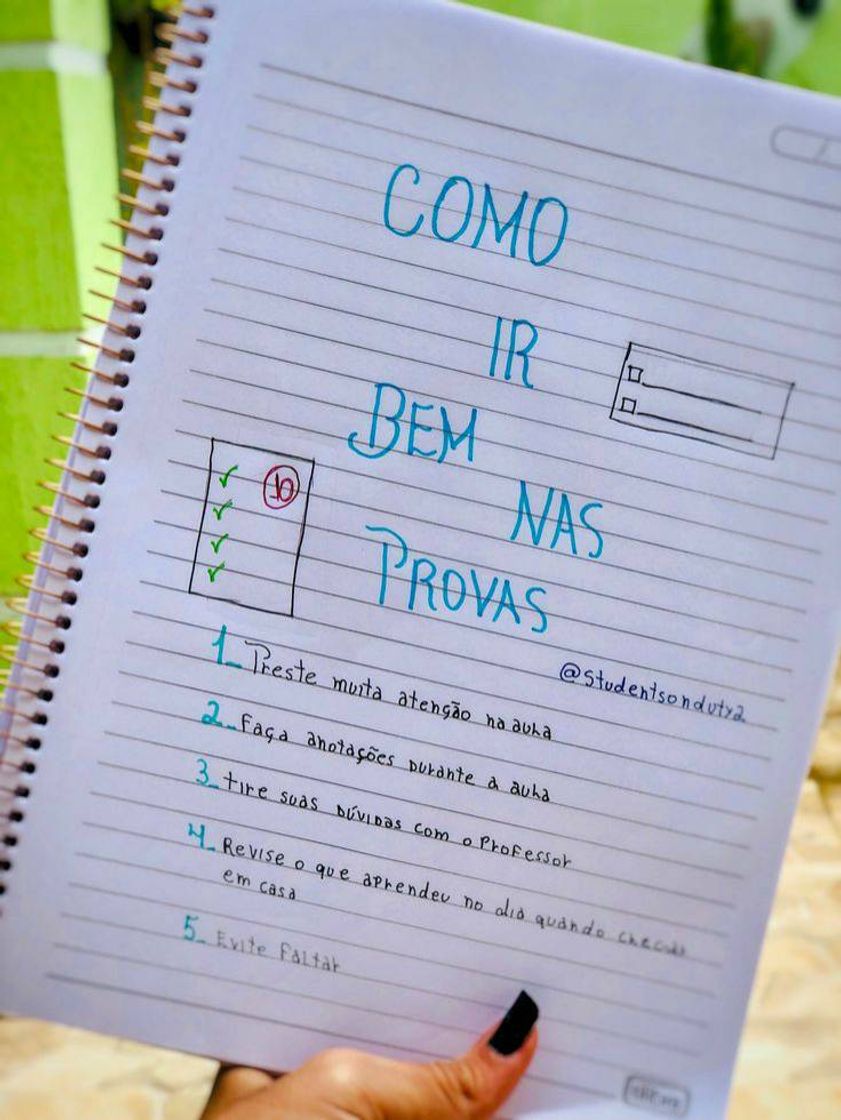 COMO
IR
BEM
NAS
PROVAS
10
@studentsonduty2
1_ Preste muita atenção na aula
2_ Faça anotações Durante a aula
3_ tire suas Dúvidas com o Professor
4_ Revise o que aprendeu no dia quando chegar
em casa
5_ Evite Faltar